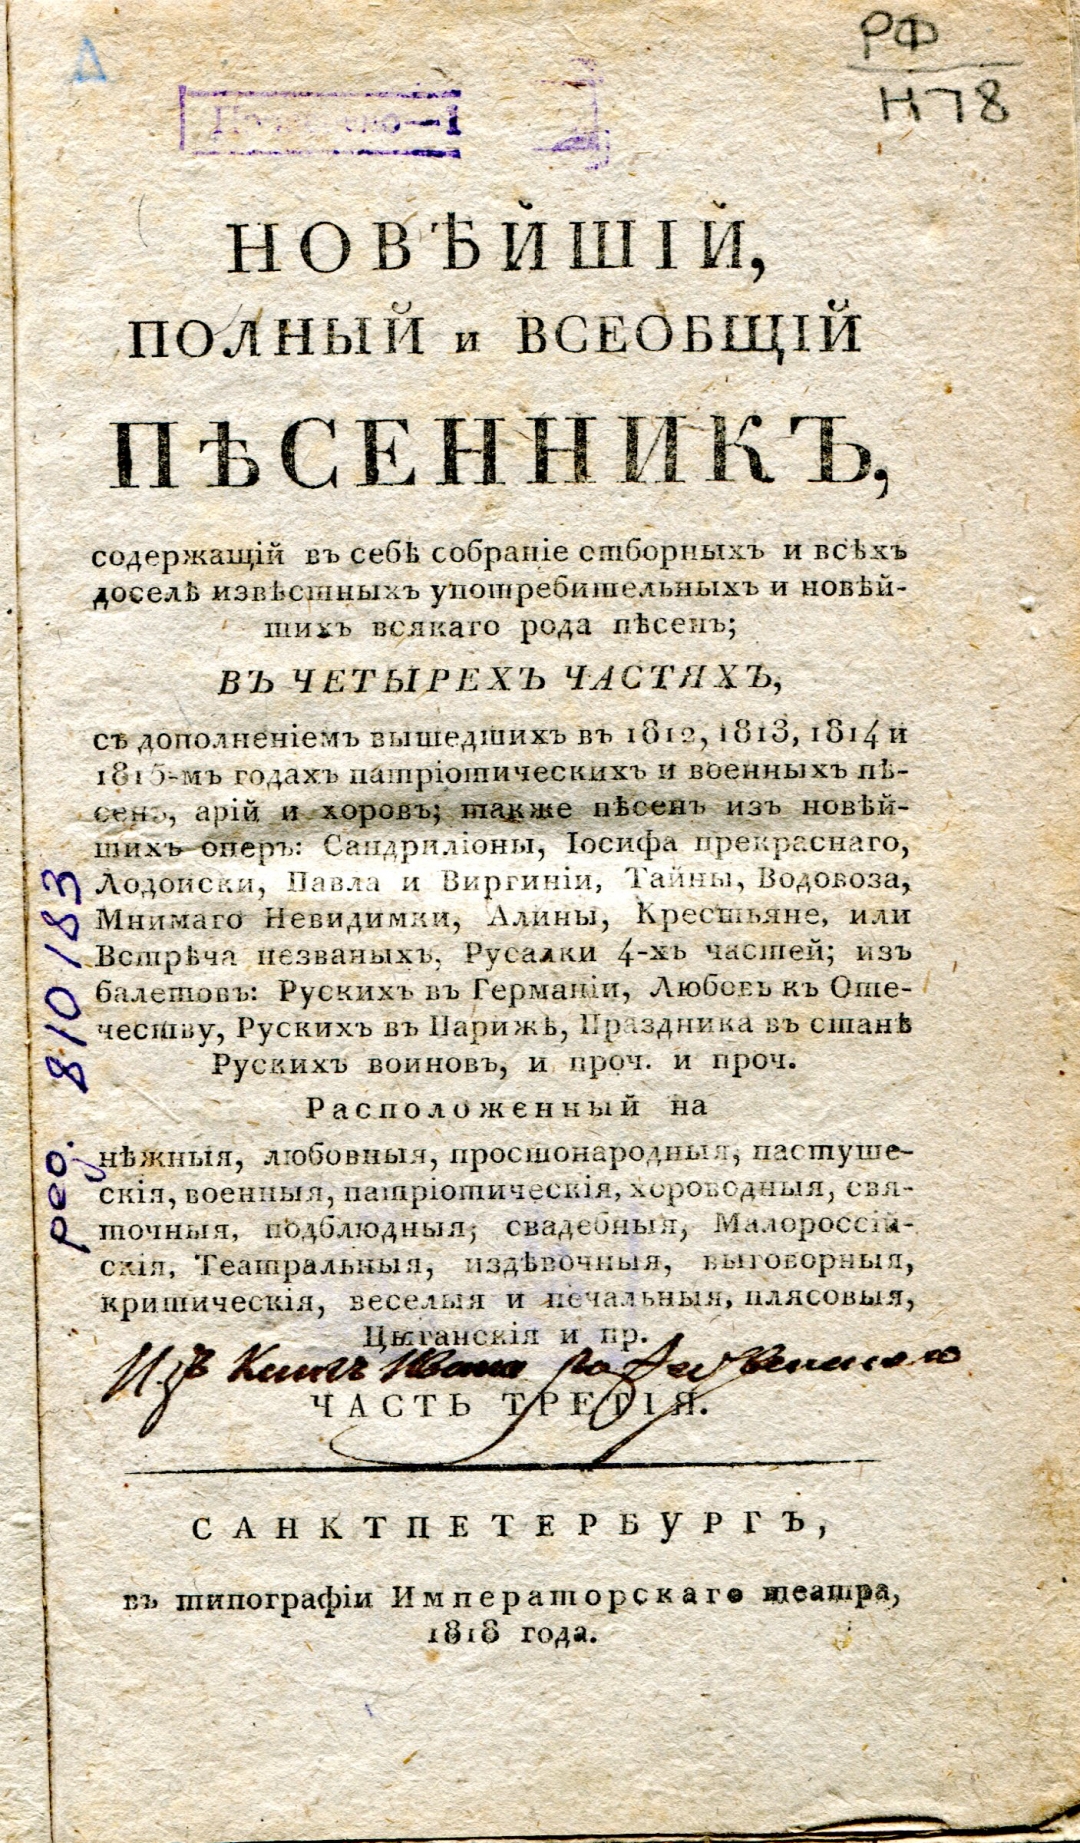 РФ
Н78
НОВѢЙШІЙ,
ПОЛНЫЙ и ВСЕОБЩІЙ
ПѢСЕННИКЪ,
содержащій въ себѣ собраніе отборныхъ и всѣхъ
доселѣ извѣстныхъ употребительныхъ и новѣй-
шихъ всякаго рода пѣсенъ;
ВЪ ЧЕТЫРЕХЪ ЧАСТЯХЪ,
съ дополненіемъ вышедшихъ въ 1812, 1813, 1814 и
1815-мъ годахъ патріотическихъ и военныхъ пѣ-
сенъ, арій и хоровъ; также пѣсенъ изъ новѣй-
шихъ оперъ: Сандриліоны, Іосифа прекраснаго,
Лодоиски, Павла и Виргиніи, Тайны, Водовоза,
Мнимаго Невидимки, Алины, Крестьяне, или
Встрѣча незваныхъ, Русалки 4-хъ частей; изъ
балетовъ: Рускихъ въ Германіи, Любовь къ Оте-
честву, Рускихъ въ Парижѣ, Праздника въ станѣ
Рускихъ воиновъ, и проч. и проч.
Расположенный на
нѣжныя, любовныя, простонародныя, пастуше-
скія, военныя, патріотическія, хороводныя, свя-
точныя, подблюдныя, свадебныя, Малороссій-
скія, Театральныя, издѣвочныя, выговорныя,
критическія, веселыя и печальныя, плясовыя,
Цыганскія и пр.
Изъ Книгъ Ивана
ЧАСТЬ ТРЕТІЯ.
САНКТПЕТЕРБУРГЪ,
въ типографіи Императорскаго театра,
1818 года.
рео. 810183